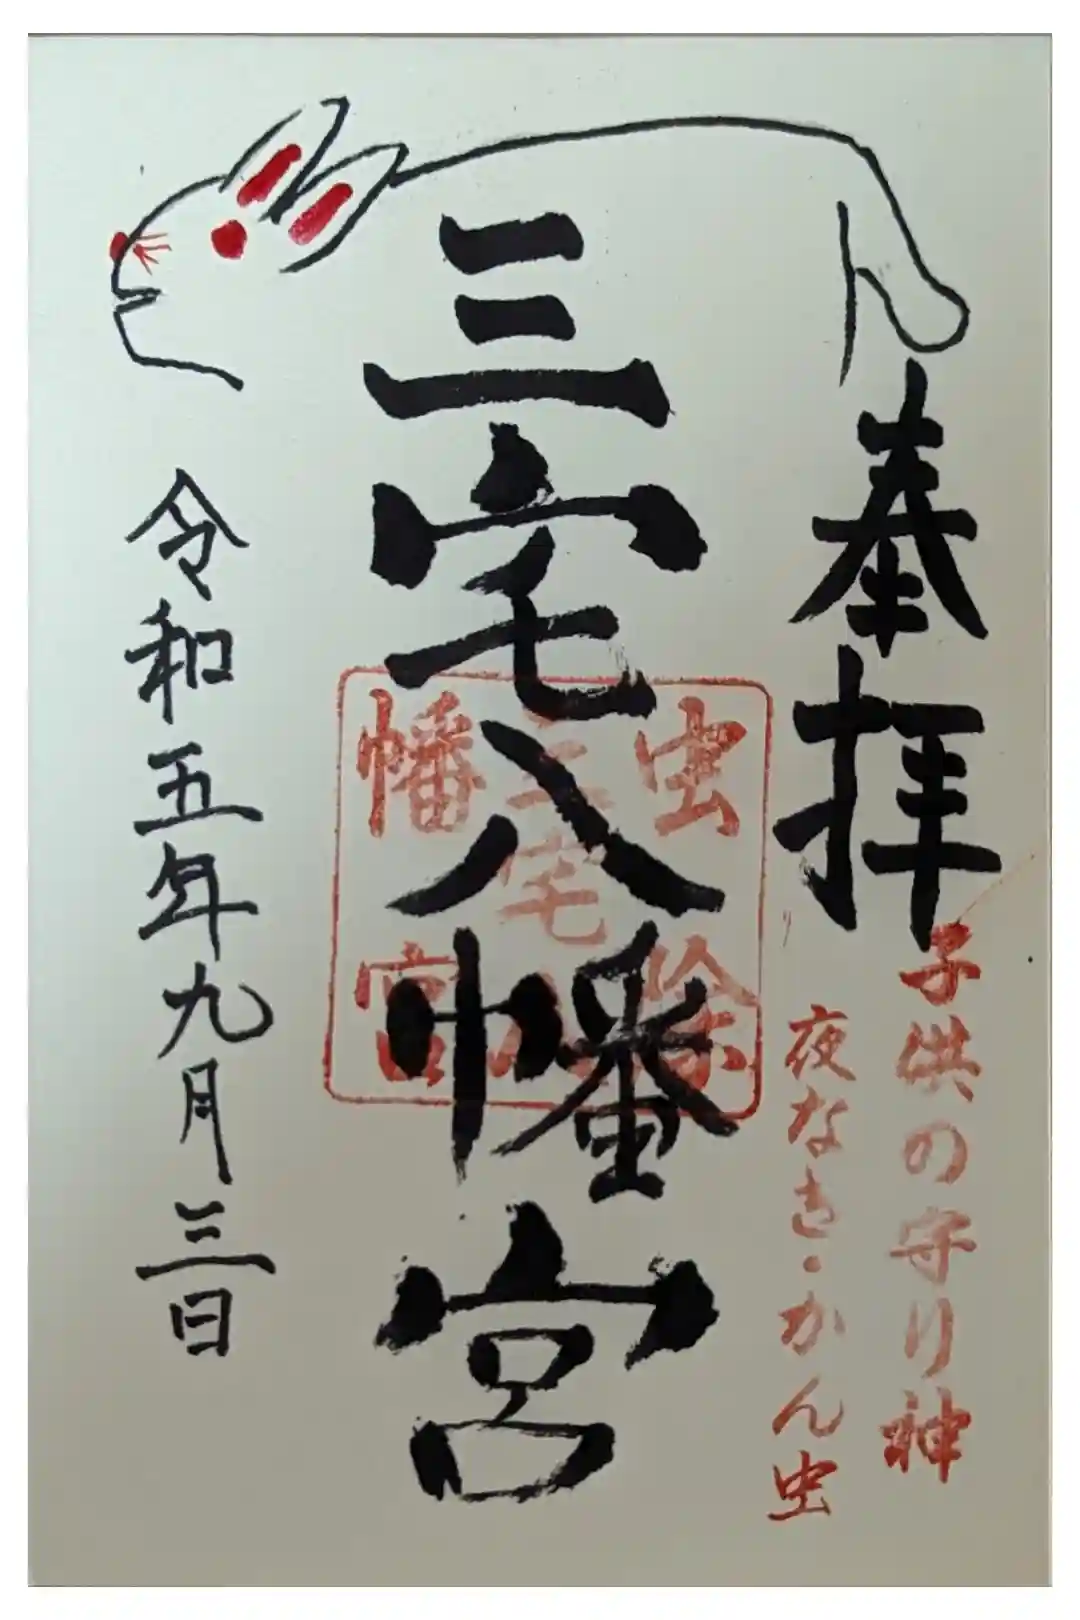 奉拝
子供の守り神
夜なき・かん虫
三宅八幡宮
虫除
三宅八
幡宮
令和五年九月三日